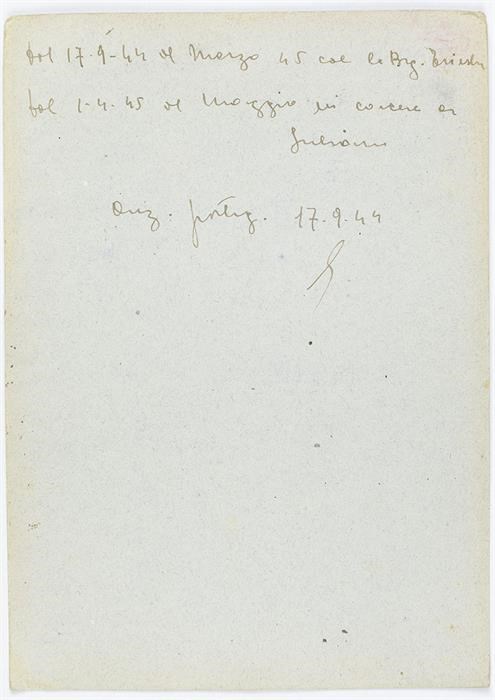 Dal 17-9-44 al Marzo 45 col la Brg. Trieste
Dal 1-4-45 al Maggio in carcere a
anz. partig. 17.9.44